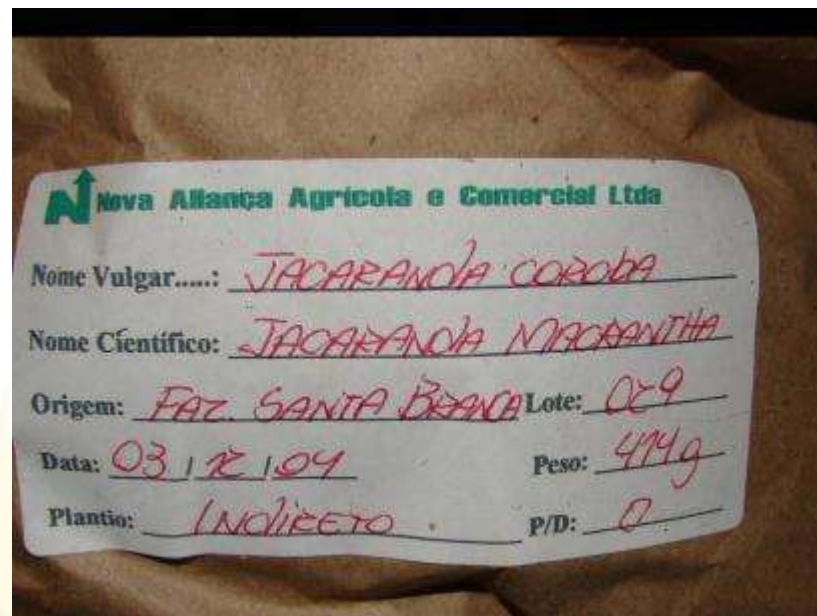 Nova Aliança Agrícola e Comercial Ltda
Nome Vulgar.....: JACARANDÁ COROBA
Nome Científico: JACARANDA MACRANTHA
Origem: FAZ. SANTA BRANCA Lote: 029
Data: 03 / 12 / 04 Peso: 414g
Plantio: INDIRETO P/D: